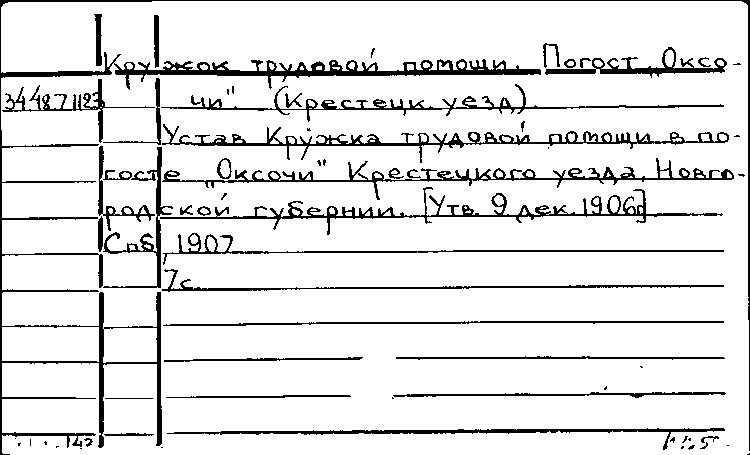 Кружок трудовой помощи. Погост „Оксо-
34.48.7.1123 чи". (Крестецк. уезд).
Устав Кружка трудовой помощи в по-
госте „Оксочи" Крестецкого уезда, Новго-
родской губернии. [Утв. 9 дек. 1906г.]
Спб, 1907
7с.